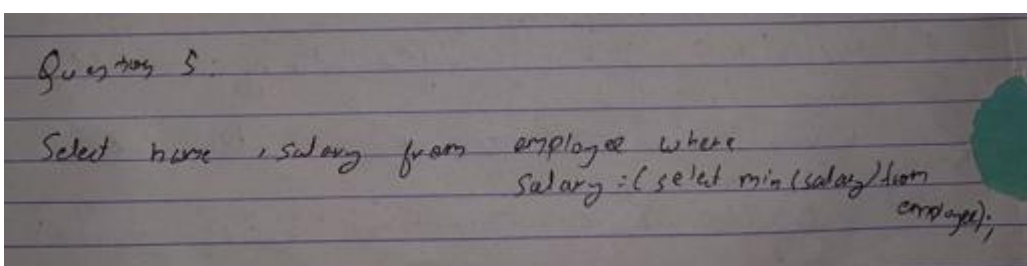 Question 5:
Select name , salary from employee where
salary = (select min (salary) from
employee);